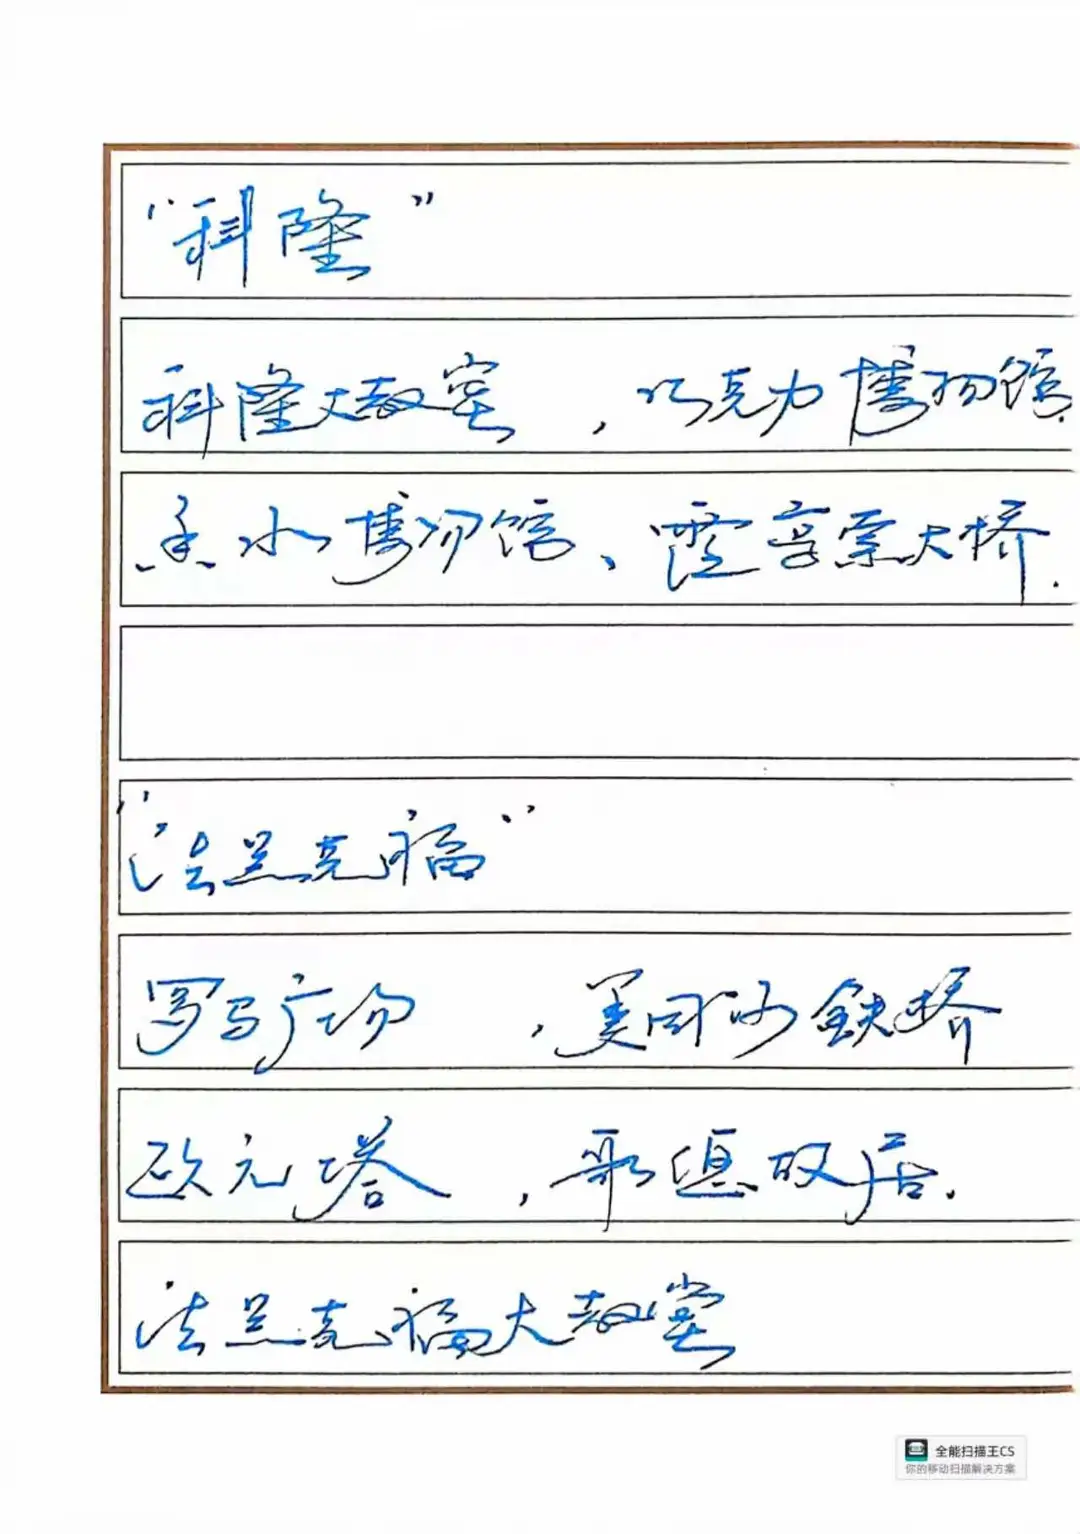 “科隆”
科隆大教堂，巧克力博物馆.
香水博物馆、霍亨索大桥.
“法兰克福”
罗马广场，美因河铁桥
欧元塔，歌德故居.
法兰克福大教堂
全能扫描王CS
你的移动扫描解决方案